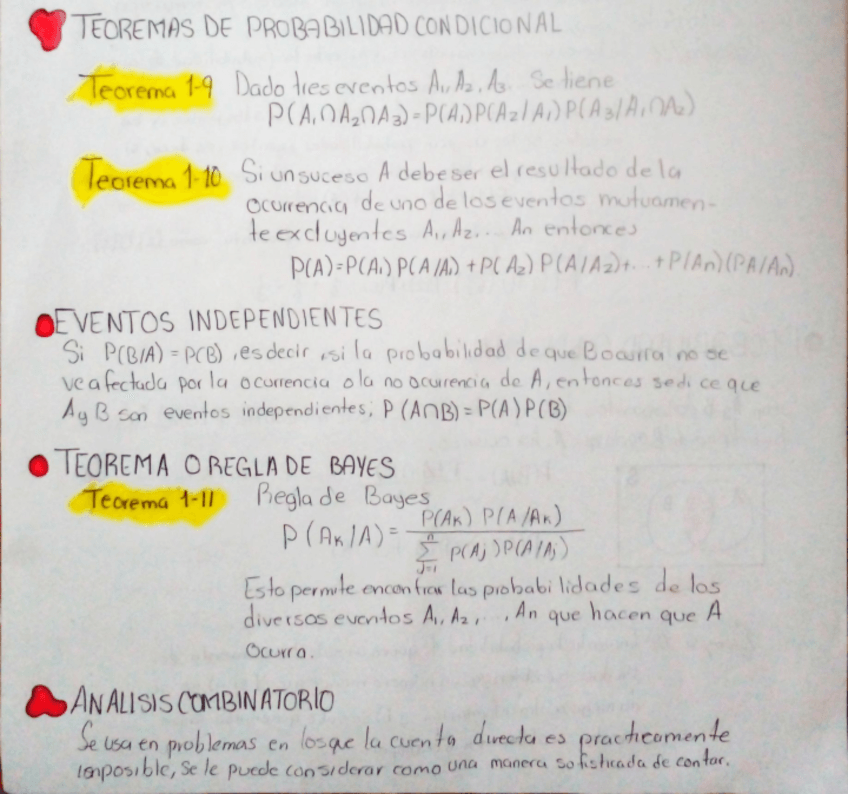 TEOREMAS DE PROBABILIDAD CONDICIONAL
Teorema 1-9 Dado tres eventos A₁, A₂, A₃. Se tiene
P(A₁∩A₂∩A₃)=P(A₁)P(A₂/A₁)P(A₃/A₁∩A₂)
Teorema 1-10 Si un suceso A debe ser el resultado de la
ocurrencia de uno de los eventos mutuamen-
te excluyentes A₁, A₂... An entonces
P(A)=P(A₁)P(A/A₁)+P(A₂)P(A/A₂)+...+P(An)(PA/An)
EVENTOS INDEPENDIENTES
Si P(B/A)=P(B), es decir, si la probabilidad de que B ocurra no se
ve afectada por la ocurrencia o la no ocurrencia de A, entonces se dice que
A y B son eventos independientes; P(A∩B)=P(A)P(B)
TEOREMA O REGLA DE BAYES
Teorema 1-11 Regla de Bayes
P(Aₖ)P(A/Aₖ)
P(Aₖ/A)=
n
∑ P(Aj)P(A/Aj)
J=1
Esto permite encontrar las probabilidades de los
diversos eventos A₁, A₂, ..., An que hacen que A
ocurra.
ANALISIS COMBINATORIO
Se usa en problemas en los que la cuenta directa es practicamente
imposible, se le puede considerar como una manera sofisticada de contar.